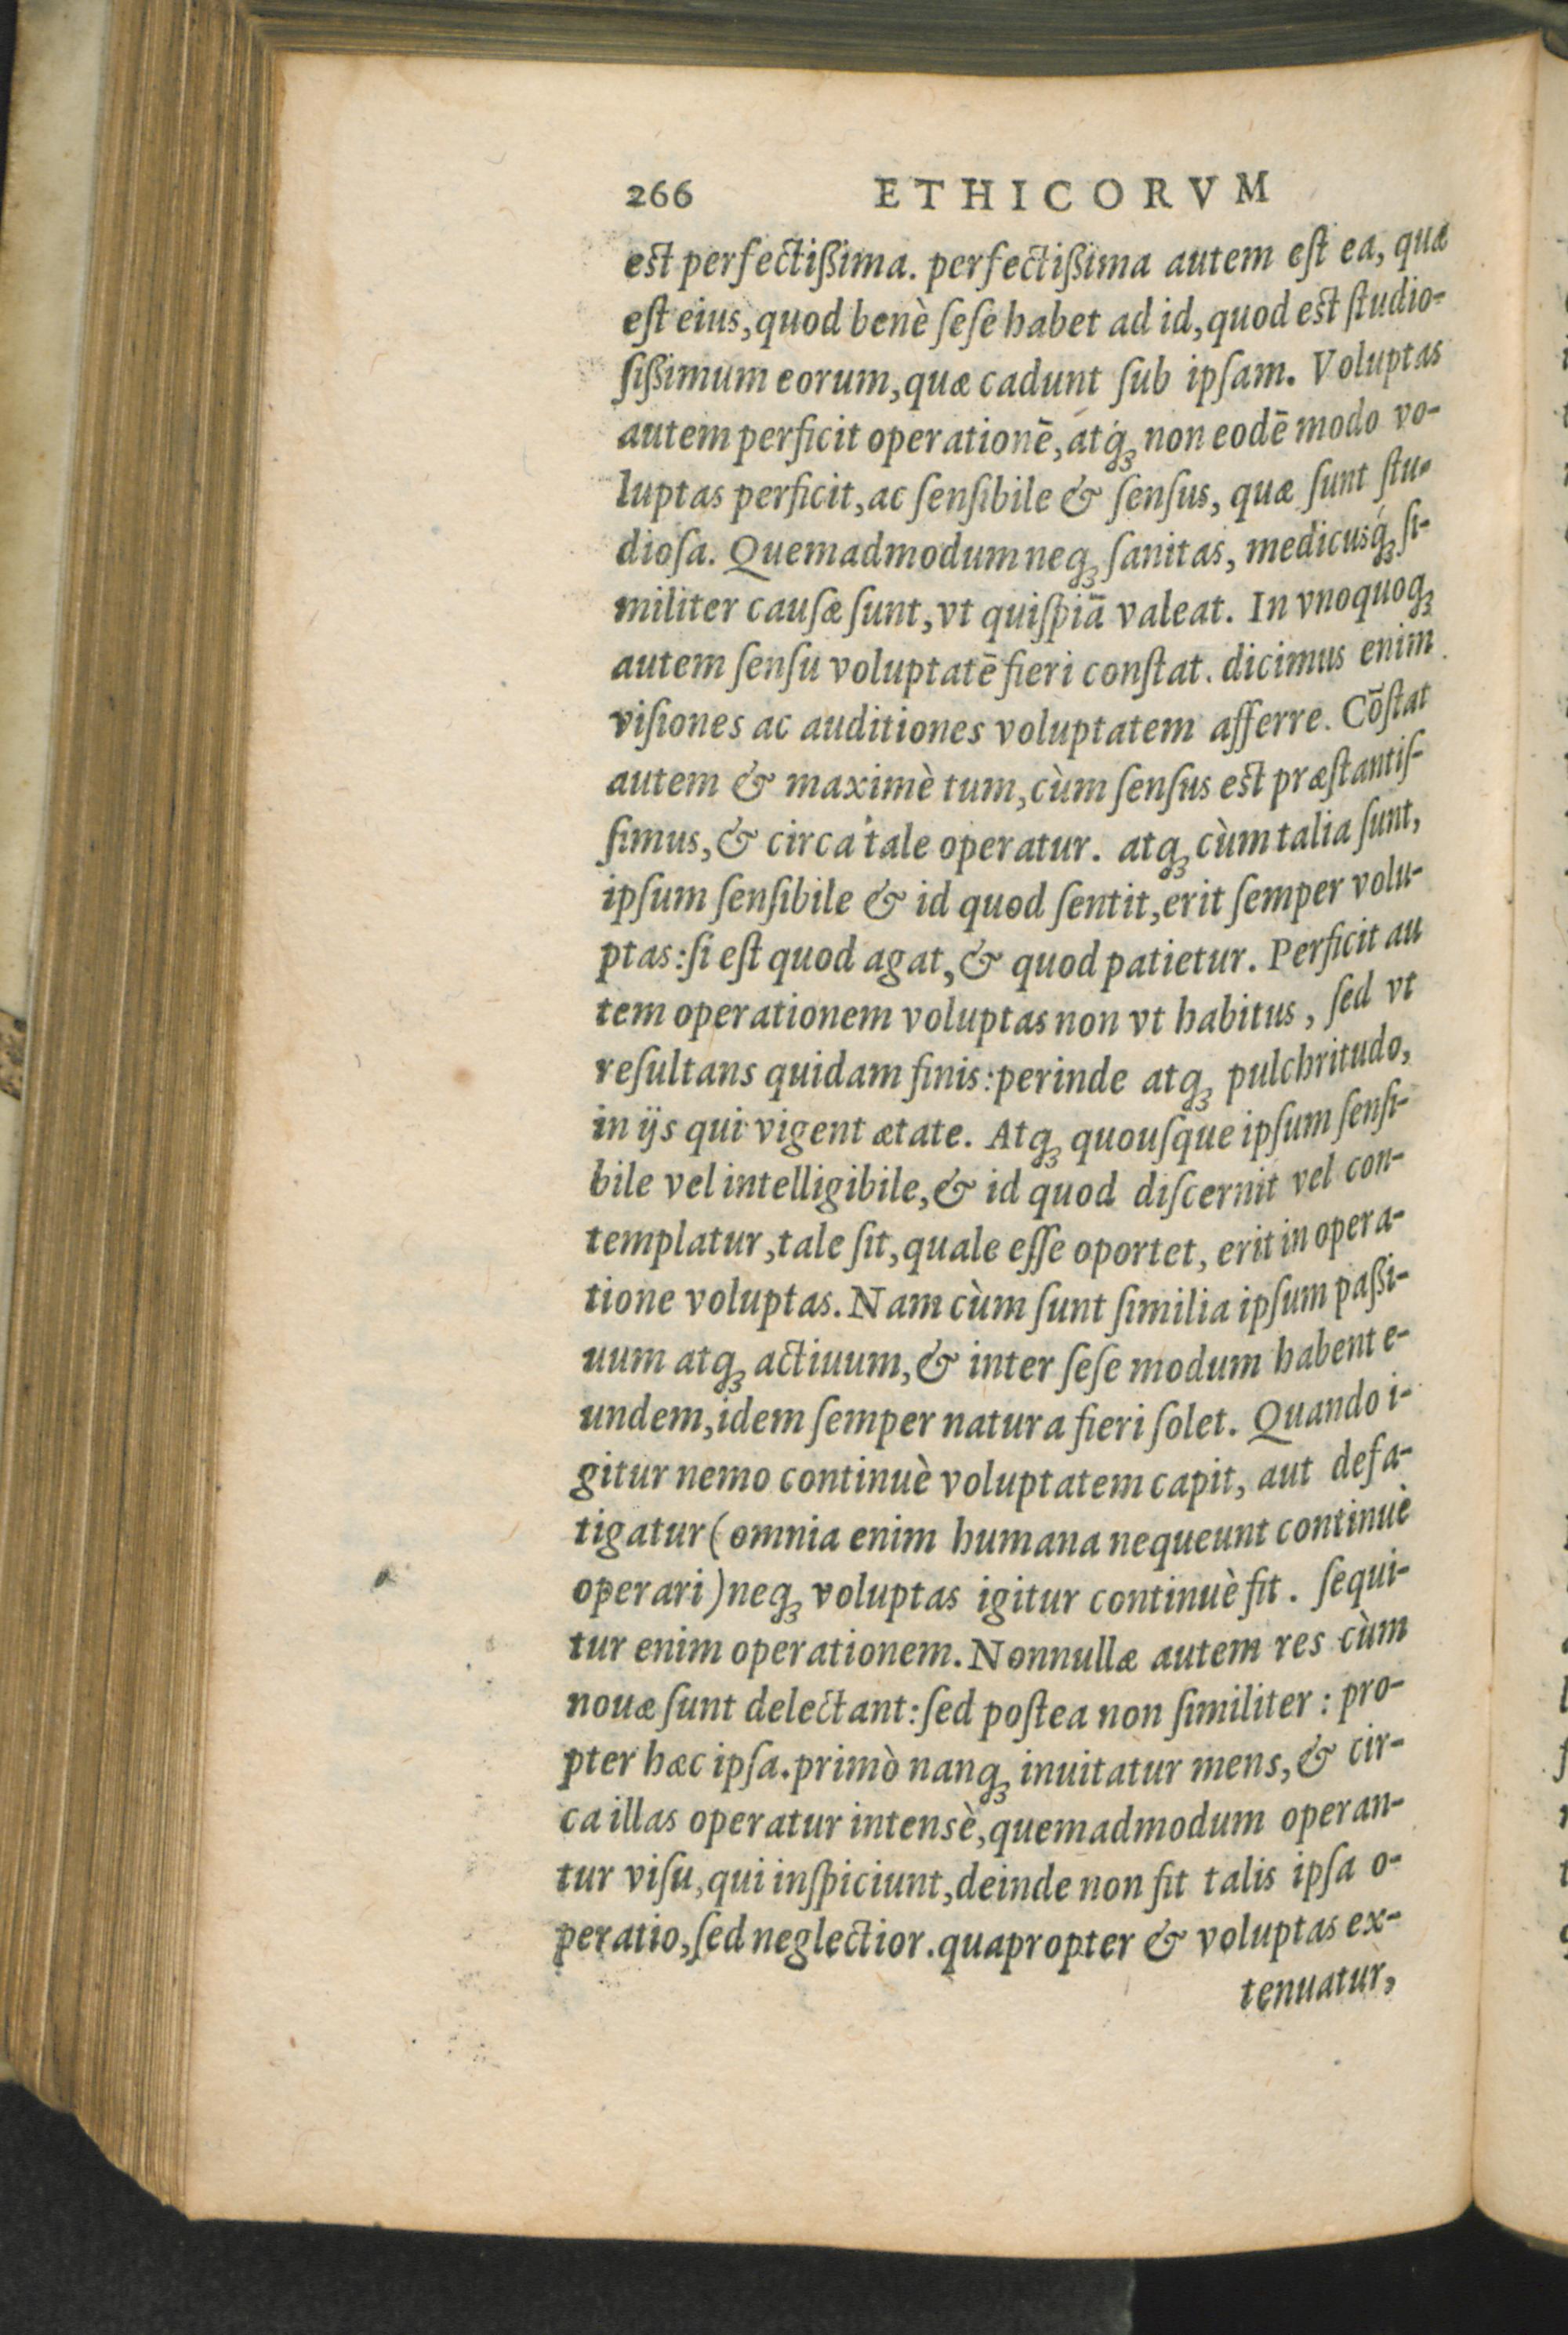 266 ETHICORVM
est perfectißima. perfectißima autem eſt ea, quæ
eſt eius, quod benè ſeſe habet ad id, quod est ſtudio-
ſißimum eorum, quæ cadunt ſub ipſam. Voluptas
autem perficit operationē, atq́ꝫ non eodē modo vo-
luptas perficit, ac ſenſibile & ſenſus, quæ ſunt ſtu-
dioſa. Quemadmodum neqꝫ ſanitas, medicusq́ꝫ ſi-
militer cauſæ ſunt, vt quiſpiā valeat. In vnoquoqꝫ
autem ſenſu voluptatē fieri conſtat. dicimus enim
viſiones ac auditiones voluptatem afferre. Cōſtat
autem & maximè tum, cùm ſenſus est præſtantiſ-
ſimus, & circa tale operatur. atqꝫ cùm talia ſunt,
ipſum ſenſibile & id quod ſentit, erit ſemper volu-
ptas: ſi eſt quod agat, & quod patietur. Perficit au
tem operationem voluptas non vt habitus, ſed vt
reſultans quidam finis: perinde atqꝫ pulchritudo,
in ijs qui vigent ætate. Atqꝫ quouſque ipſum ſenſi-
bile vel intelligibile, & id quod diſcernit vel con-
templatur, tale ſit, quale eſſe oportet, erit in opera-
tione voluptas. Nam cùm ſunt ſimilia ipſum paßi-
uum atqꝫ actiuum, & inter ſeſe modum habent e-
undem, idem ſemper natura fieri ſolet. Quando i-
gitur nemo continuè voluptatem capit, aut defa-
tigatur (omnia enim humana nequeunt continuè
operari) neqꝫ voluptas igitur continuè fit. ſequi-
tur enim operationem. Nonnullæ autem res cùm
nouæ ſunt delectant: ſed poſtea non ſimiliter: pro-
pter hæc ipſa. primò nanqꝫ inuitatur mens, & cir-
ca illas operatur intensè, quemadmodum operan-
tur viſu, qui inſpiciunt, deinde non fit talis ipſa o-
peratio, ſed neglectior. quapropter & voluptas ex-
tenuatur,